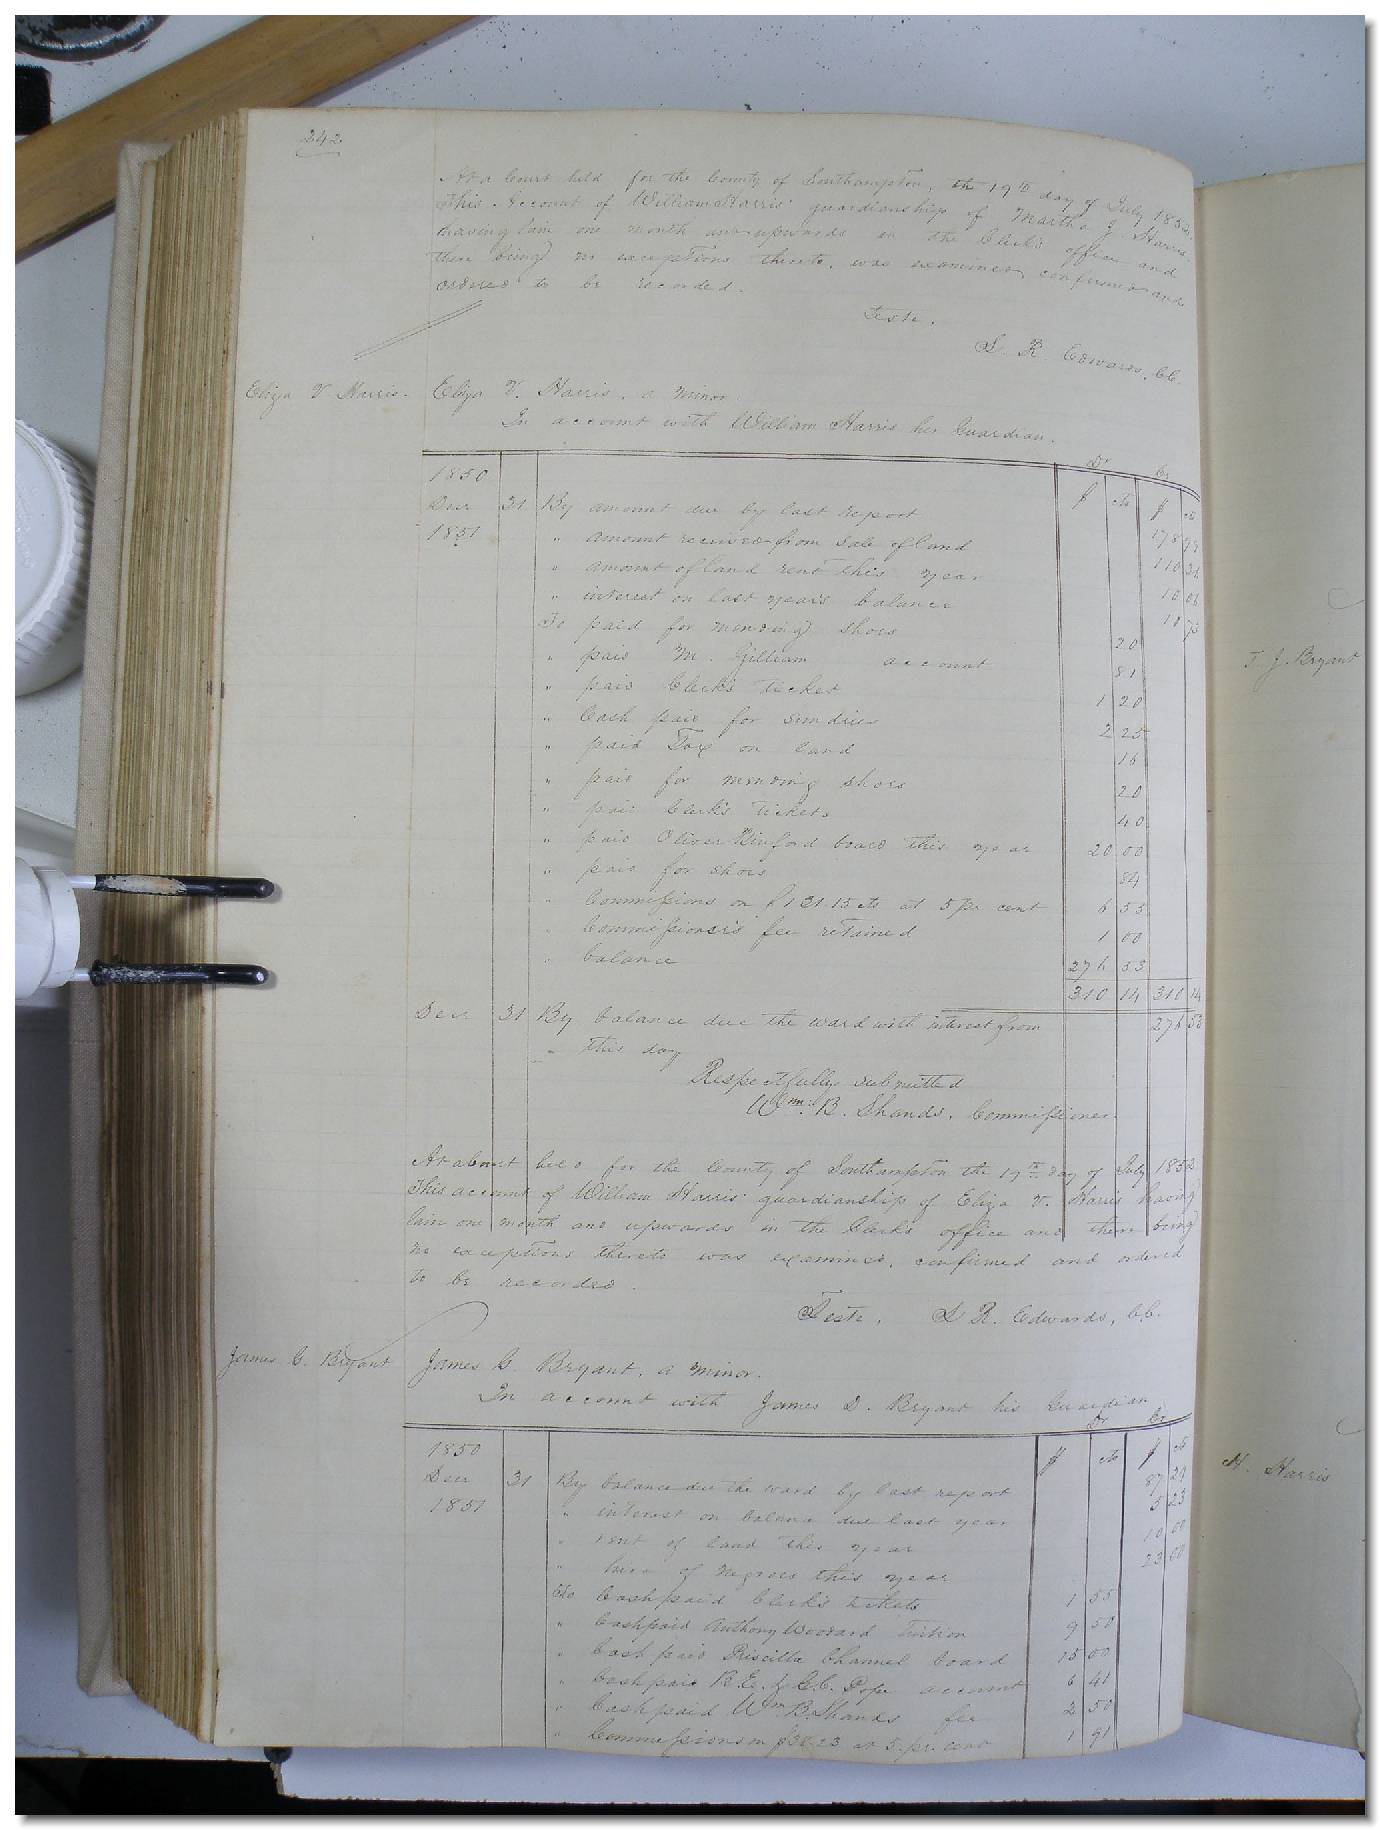 242
At a Court held for the County of Southampton, the 19th day of July 1852.
This Account of William Harris' guardianship of Martha J. Harris,
having lain one month and upwards in the Clerk's office and
there being no exceptions thereto, was examined, confirmed and
ordered to be recorded.
Teste.
L. R. Edwards, CC.
Eliza V. Harris.
Eliza V. Harris, a minor.
In account with William Harris her Guardian.
Dr Cr
1850 $ cts $ cts
Decr 31 By amount due by last report 178 99
1851 " amount received from sale of land 110 36
" amount of land rent this year 10 06
" interest on last years balance 10 73
To paid for mending shoes 20
" paid M. Gilliam account 81
" paid Clerk's ticket 1 20
" Cash paid for sundries 2 25
" paid Tax on land 16
" paid for mending shoes 20
" paid Clerk's Tickets 40
" paid Oliver Kinford board this year 20 00
" paid for shoes 84
" Commissions on $131.15 cts at 5 pr cent 6 55
" Commissioner's fee retained 1 00
" balance 276 53
310 14 310 14
Decr 31 By balance due the ward with interest from 276 53
" this day
Respectfully submitted
Wm. B. Shands. Commissioner.
At a Court held for the County of Southampton the 19th day of July 1852
This account of William Harris' guardianship of Eliza V. Harris having
lain one month and upwards in the Clerk's office and there being
no exceptions thereto was examined, confirmed and ordered
to be recorded.
Teste, L R. Edwards, CC.
James C. Bryant
James C. Bryant, a minor.
In account with James D. Bryant his Guardian
Dr Cr
1850 $ cts $ cts
Decr 31 By balance due the ward by last report 87 21
1851 " interest on balance due last year 5 23
" rent of land this year 10 00
" hire of negroes this year 23 00
To Cash paid Clerk's tickets 1 55
" Cash paid Anthony Woodard Tuition 9 50
" Cash paid Priscilla Channel board 15 00
" Cash paid R. E. & C. C. Pope account 6 41
" Cash paid Wm B. Shands fee 2 50
" Commissions on $38.23 at 5 pr. cent 1 91
T. J. Bryant
H. Harris